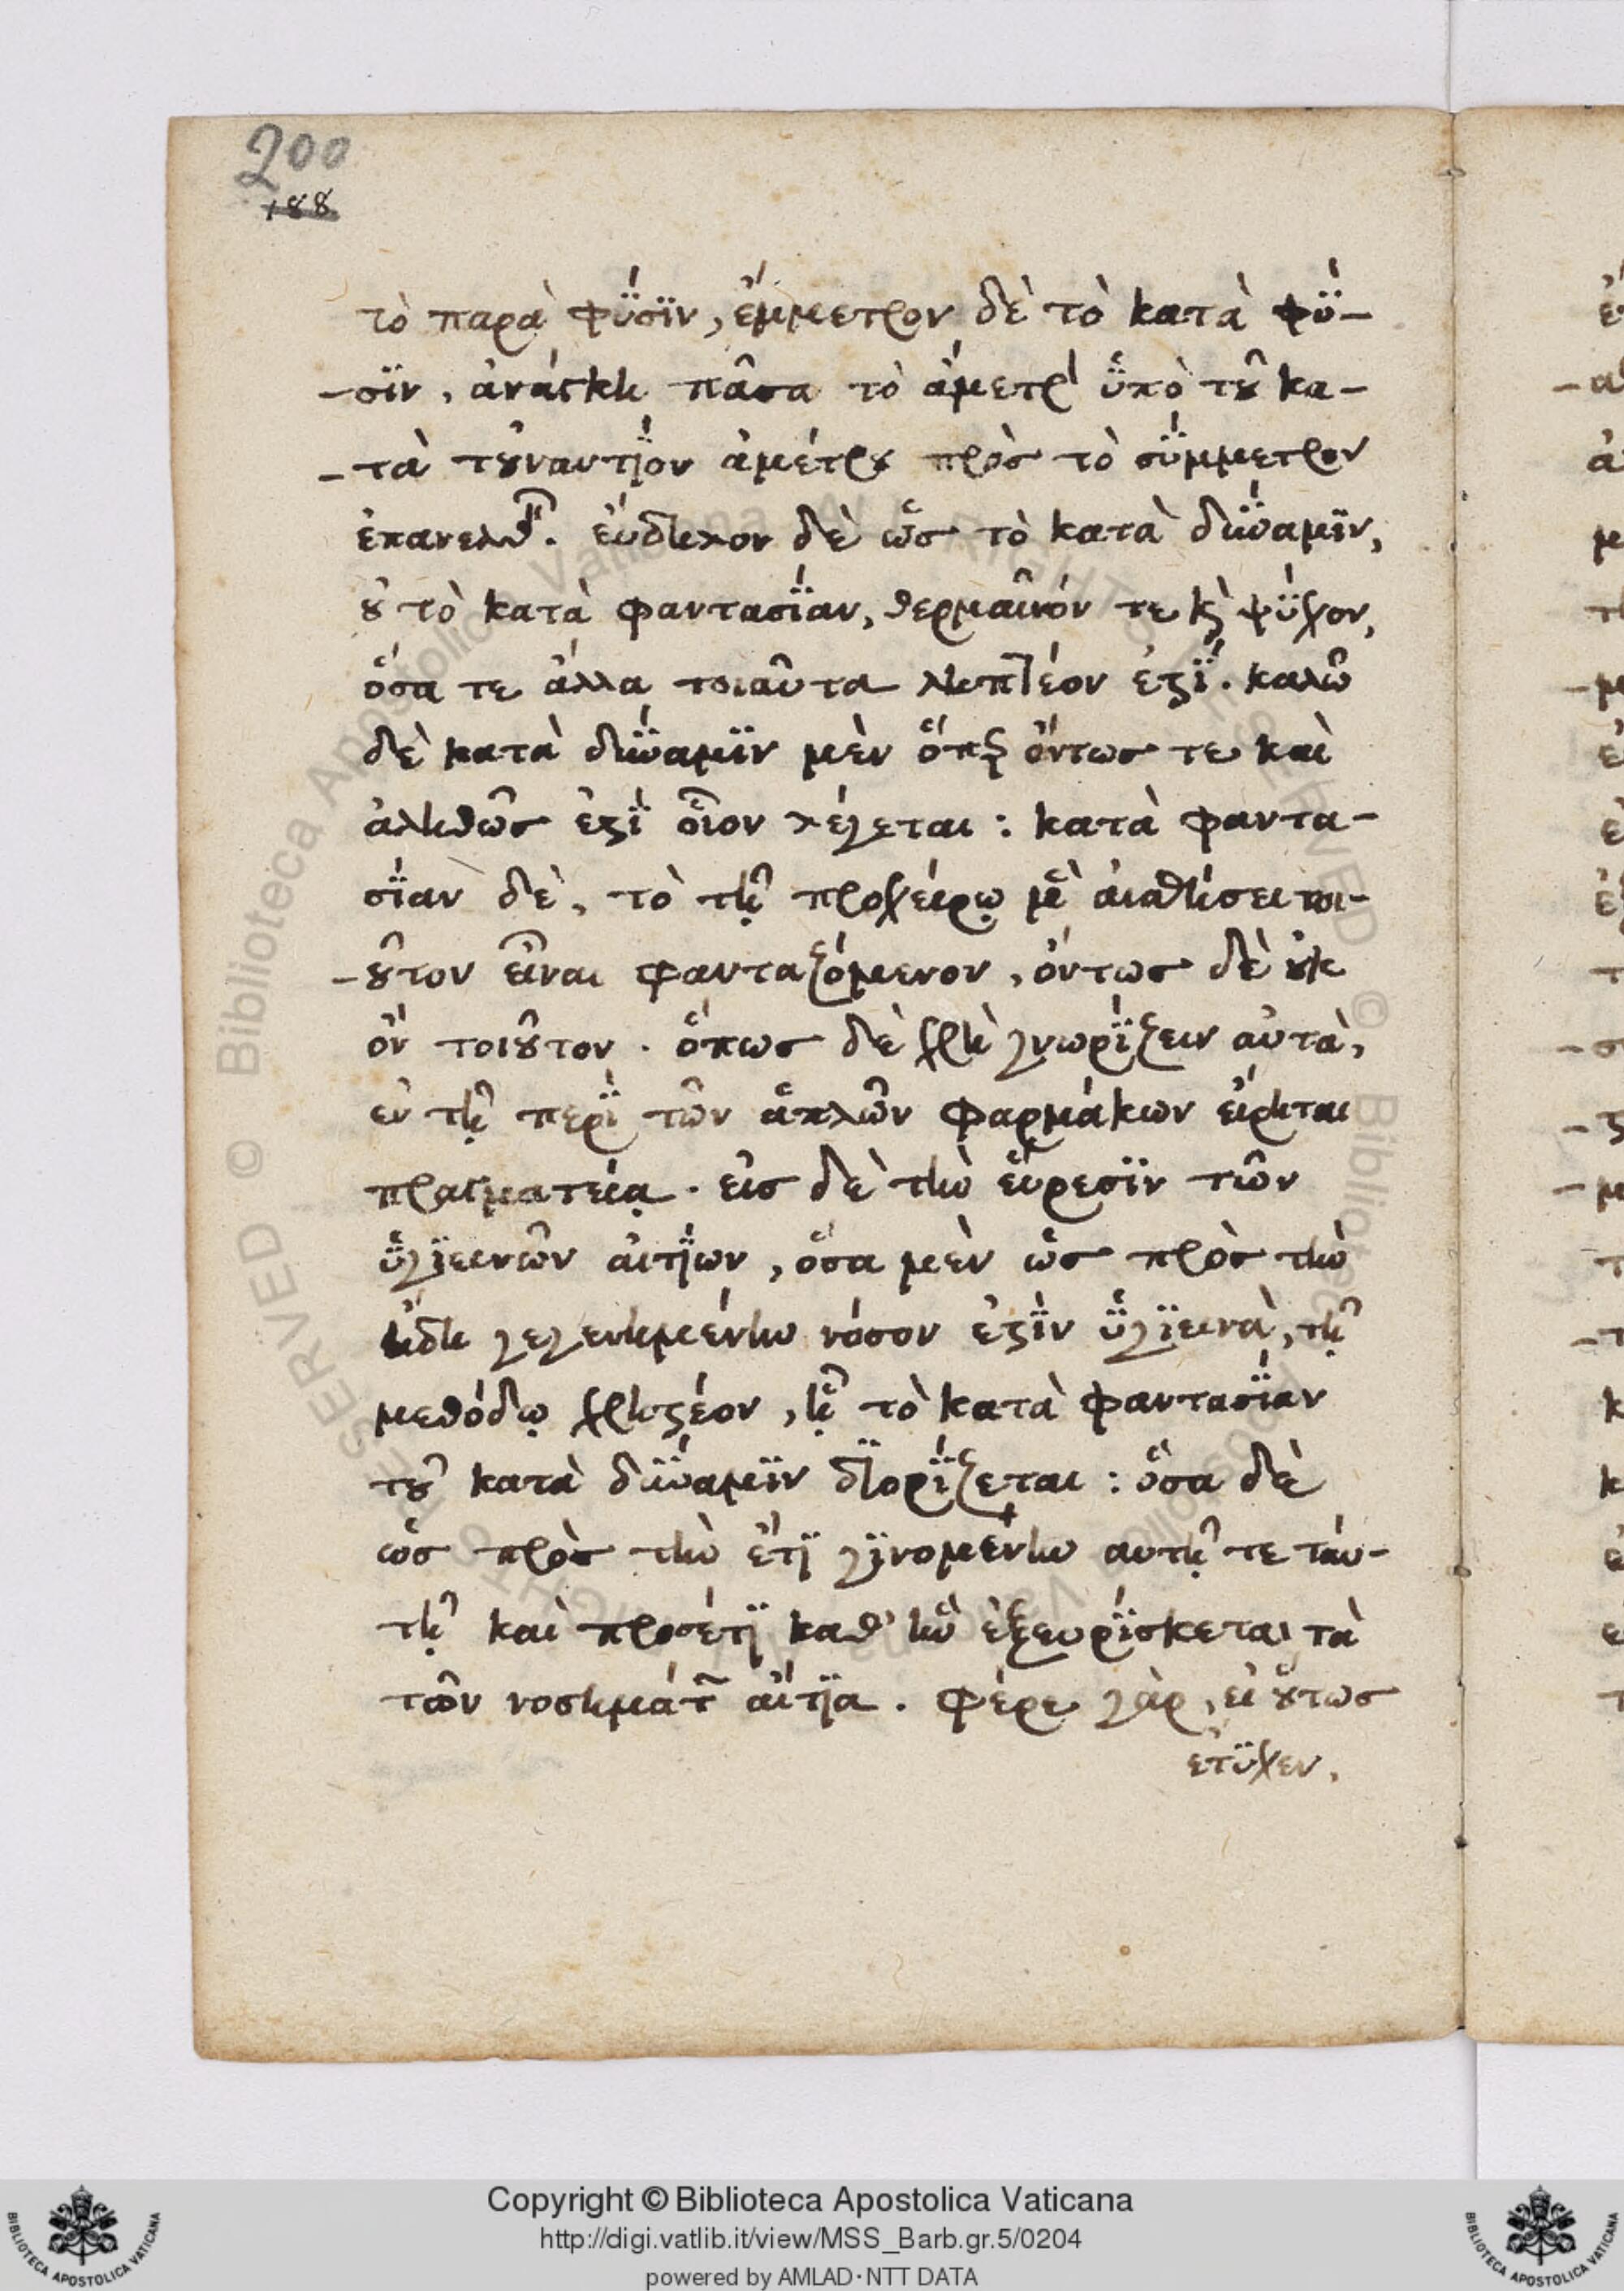 200
188
τὸ παρὰ φύσϊν, ἔμμετρον δὲ τὸ κατὰ φύ-
-σϊν, ἀνάγκη πᾶσα τὸ ἄμετρ ὑπὸ τοῦ κα-
-τὰ τοὐναντίον ἀμέτρου πρὸς τὸ σύμμετρον
ἐπανελθ. εὔδηλον δὲ ὡς τὸ κατὰ δύναμϊν,
οὐ τὸ κατὰ φαντασίαν, θερμαῖνόν τε καὶ ψύχον,
ὅσα τε ἄλλα τοιαῦτα ληπτέον ἐστί. καλῶ
δὲ κατὰ δύναμϊν μὲν ὅπερ ὄντως τε καὶ
ἀληθῶς ἐστὶ οἷον λέγεται : κατὰ φαντα-
σίαν δὲ, τὸ τῇ προχείρῳ μὲ αἰσθήσει τοι-
-οῦτον εἶναι φανταζόμενον, ὄντως δὲ οὐκ
ὂν τοιοῦτον. ὅπως δὲ χρὴ γνωρίζειν αὐτὰ,
ἐν τῇ περὶ τῶν ἁπλῶν φαρμάκων εἴρηται
πραγματείᾳ. εἰς δὲ τὴν εὕρεσϊν τῶν
ὑγϊεινῶν αἰτίων, ὅσα μὲν ὡς πρὸς τὴν
ἤδη γεγενημένην νόσον ἐστὶν ὑγϊεινὰ, τῇ
μεθόδῳ χρηστέον, ᾗ τὸ κατὰ φαντασίαν
τοῦ κατὰ δύναμϊν δϊορίζεται : ὅσα δὲ
ὡς πρὸς τὴν ἔτϊ γϊνομένην αυτῇ τε ταύ-
τῃ καὶ προσέτϊ καθ' ἣν ἐξευρίσκεται τὰ
τῶν νοσημάτ αἴτϊα. φέρε γὰρ, εἰ οὕτως
ἔτυχεν,
Copyright © Biblioteca Apostolica Vaticana
http://digi.vatlib.it/view/MSS_Barb.gr.5/0204
powered by AMLAD·NTT DATA